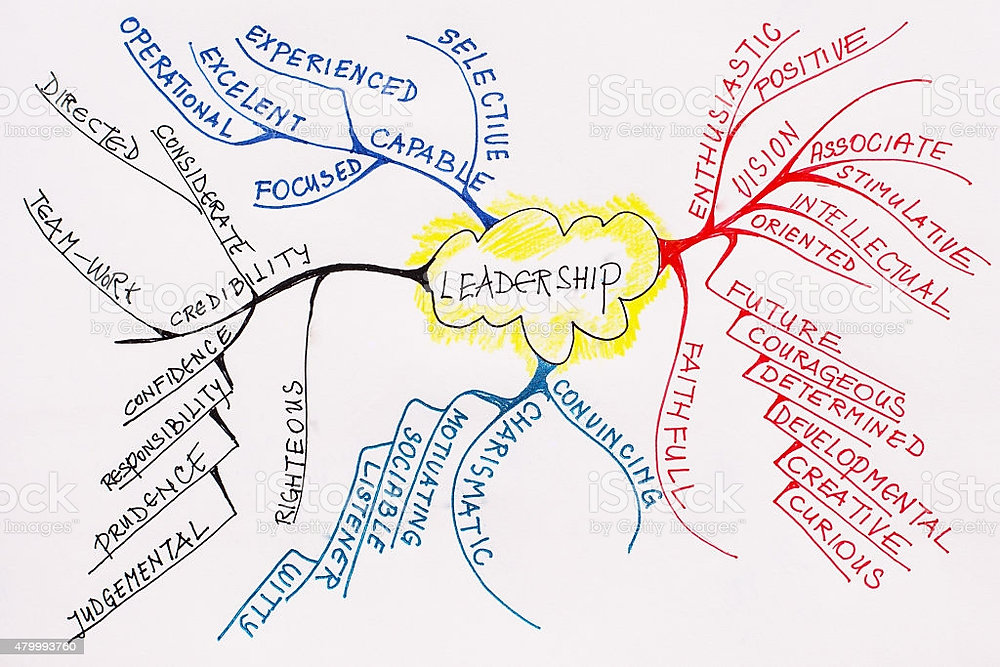 LEADERSHIP
SELECTIVE
CAPABLE
EXPERIENCED
EXCELENT
OPERATIONAL
FOCUSED
CREDIBILITY
CONSIDERATE
DIRECTED
TEAM-WORK
CONFIDENCE
RESPONSIBILITY
PRUDENCE
JUDGEMENTAL
RIGHTEOUS
CONVINCING
CHARISMATIC
MOTIVATING
SOCIABLE
LISTENER
WITTY
ENTHUSIASTIC
POSITIVE
VISION
ASSOCIATE
STIMULATIVE
INTELLECTUAL
ORIENTED
FUTURE
COURAGEOUS
DETERMINED
DEVELOPMENTAL
CREATIVE
CURIOUS
FAITHFULL
iStock
by Getty Images™
479993760